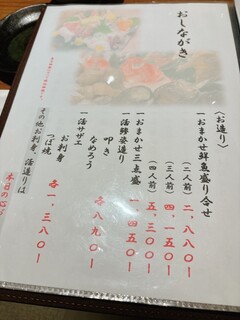 おしながき
〈お造り〉
一おまかせ鮮魚盛り合せ
(二人前) 二、八八〇ー
(三人前) 四、一五〇ー
(四人前) 五、三〇〇ー
一おまかせ三点盛 一、四五〇ー
一活鯵姿造り
叩き
なめろう 各一、八九〇ー
一活サザエ
お刺身
つぼ焼 各一、三八〇ー
その他お刺身、活造りは